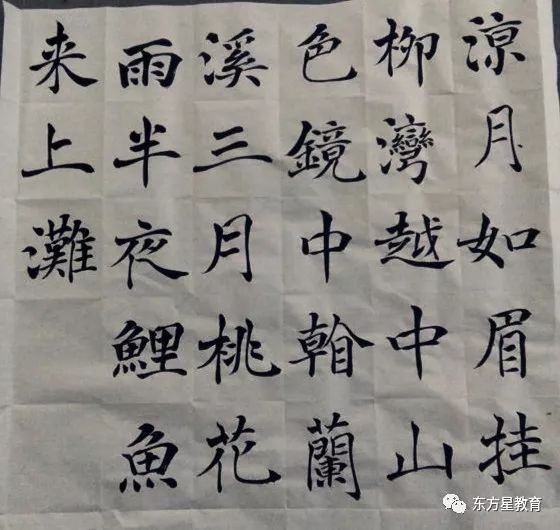 涼月如眉挂
柳灣越中山
色鏡中蘭
溪三月桃花
雨半夜鯉魚
来上灘
东方星教育